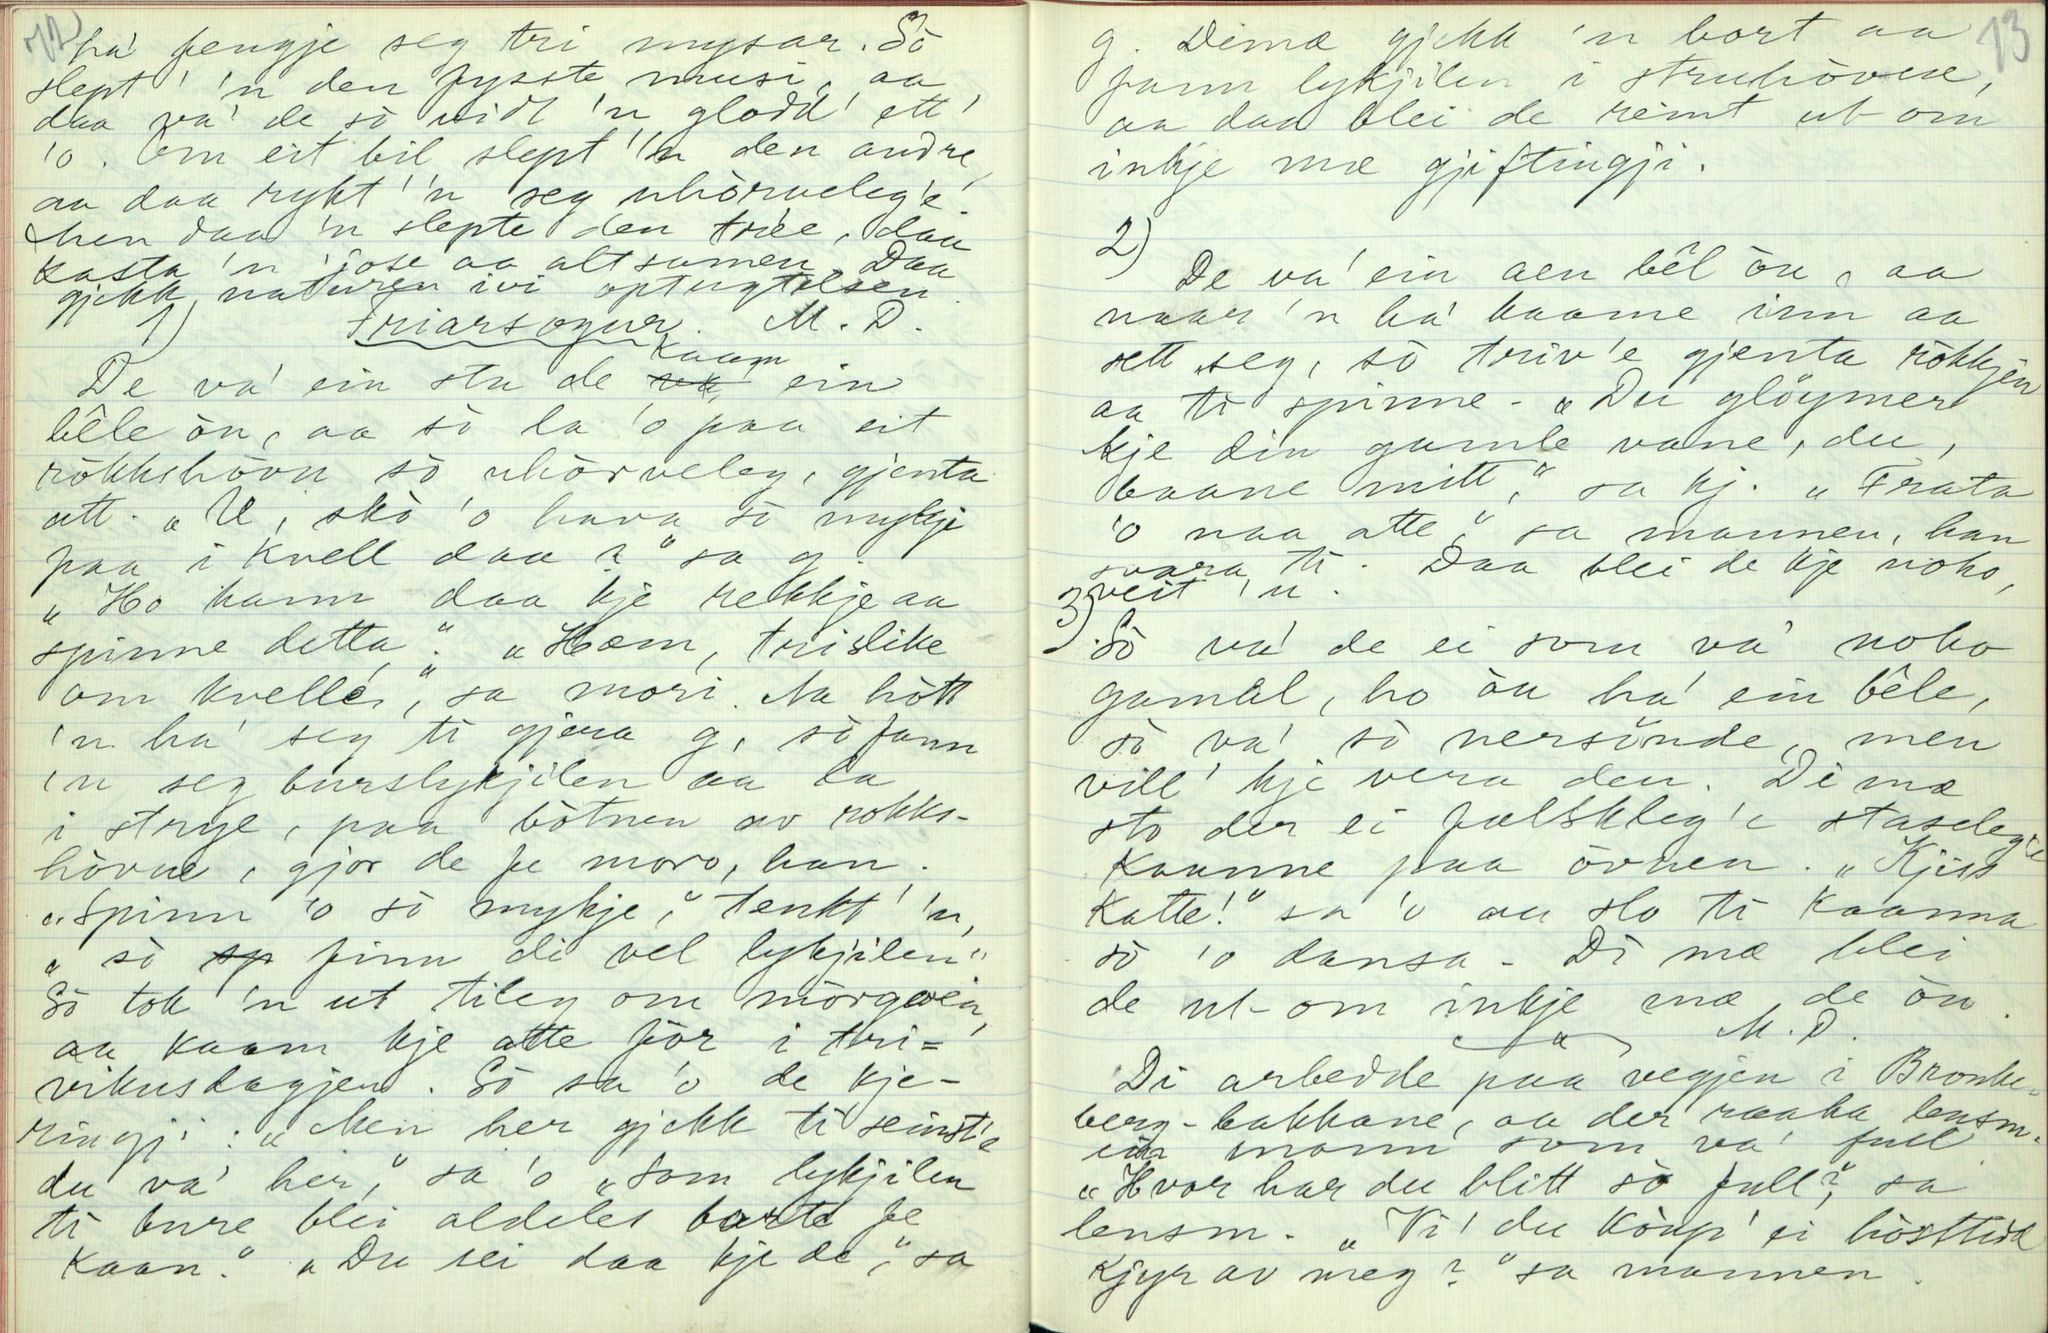 12)
ha' fengje seg tri mysar. Sò
slept' 'n den fysste musi, aa
daa va' de sò vidt 'n glodd' ett'
'o. Om eit bil slept' 'n den andre,
aa daa rykt' 'n seg uhòrveleg'e.
Men daa 'n slepte den tri'e, daa
kasta 'n jose aa altsamen. Daa
gjekk naturen ivi optugtelsen.
1) Friarsogur. M. D.
De va' ein sta de kaam ein
bêle òn, aa sò la 'o paa eit
rökkshövu sò uhörveleg, gjenta
att. "U, skò 'o hava sò mykje
paa i kvell daa?" sa g.
"Ho kann daa kje rekkje aa
spinne detta". "Hæm, tri slike
om kvelle'," sa mori. Aa hòtt
'n ha' seg ti gjera g, sò fann
'n seg burslykjilen aa la
i strye, paa bòtnen av rokks-
hövue, gjor de fe moro, han.
"Spinn 'o sò mykje," tenkt' 'n,
"sò finn di vel lykjilen"
Sò tok 'n ut tileg om mòrgoein,
aa kaam kje atte för i tri-
vikusdagjen. Sò sa 'o de kje-
ringji: "Men her gjekk ti seinst'e
du va' her," sa 'o "som lykjilen
ti bure blei aldeles borte fe
kaan." "Du sei daa kje de," sa
13
g. Dimæ gjekk 'n bort aa
fann lykjilen i struhövue,
aa daa blei de reint ut-om
inkje mæ gjiftingji.
2)
De va' ein aen bêl òn, aa
naar 'n ha' kaame inn aa
sett seg, sò triv'e gjenta rökkjen
aa ti spinne - "Du glöymer
kje din gamle vane, du,
baane mitt," sa kj. "Frata
'o naa atte," sa mannen, han
svara ti. Daa blei de kje noko,
veit 'n.
3) Sò va' de ei som va' noko
gamal, ho òn ha' ein bêle,
sò va' sò nersönde, men
vill' kje vera den. Di mæ
sto der ei fælskleg'e staseleg'e
kaanne paa òvnen. "Kjiss
katte!" sa 'o aa slo ti kaanna
sò 'o dansa - Di mæ blei
de ut-om inkje mæ, de òn.
M. D.
Di arbedde paa vegjen i Bronke-
berg-bakkane, aa der raaka lensm.
ein mann som va' full
"Hvor har du blitt sò full?" sa
lensm. "Vi' du kòup' ei hòsttid
kjyr av meg?" sa mannen.